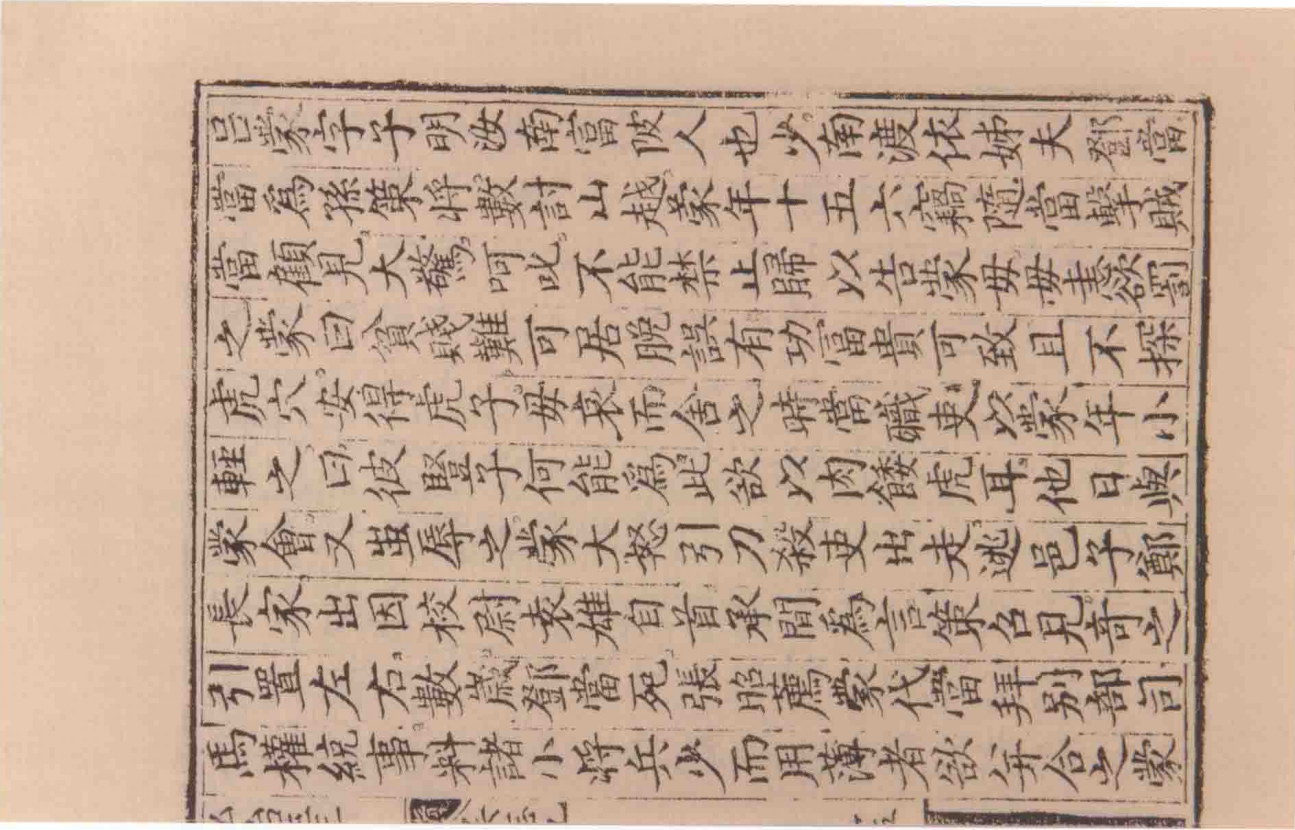 吕蒙字子明汝南富陂人也少南渡依姊夫鄧當
當爲孫策將數討山越蒙年十五六竊隨當擊賊
當顧見大驚呵叱不能禁止歸以告蒙母母恚欲罰
之蒙曰貧賤難可居脫誤有功富貴可致且不探
虎穴安得虎子母哀而舍之時當職吏以蒙年小
輕之曰彼豎子何能爲此欲以肉餧虎耳他日與
蒙會又蚩辱之蒙大怒引刀殺吏出走逃邑子鄭
長家出因校尉袁雄自首承間爲言策召見竒之
引置左右數歲鄧當死張昭薦蒙代當拜别部司
馬權統事料諸小將兵少而用薄者欲并合之蒙